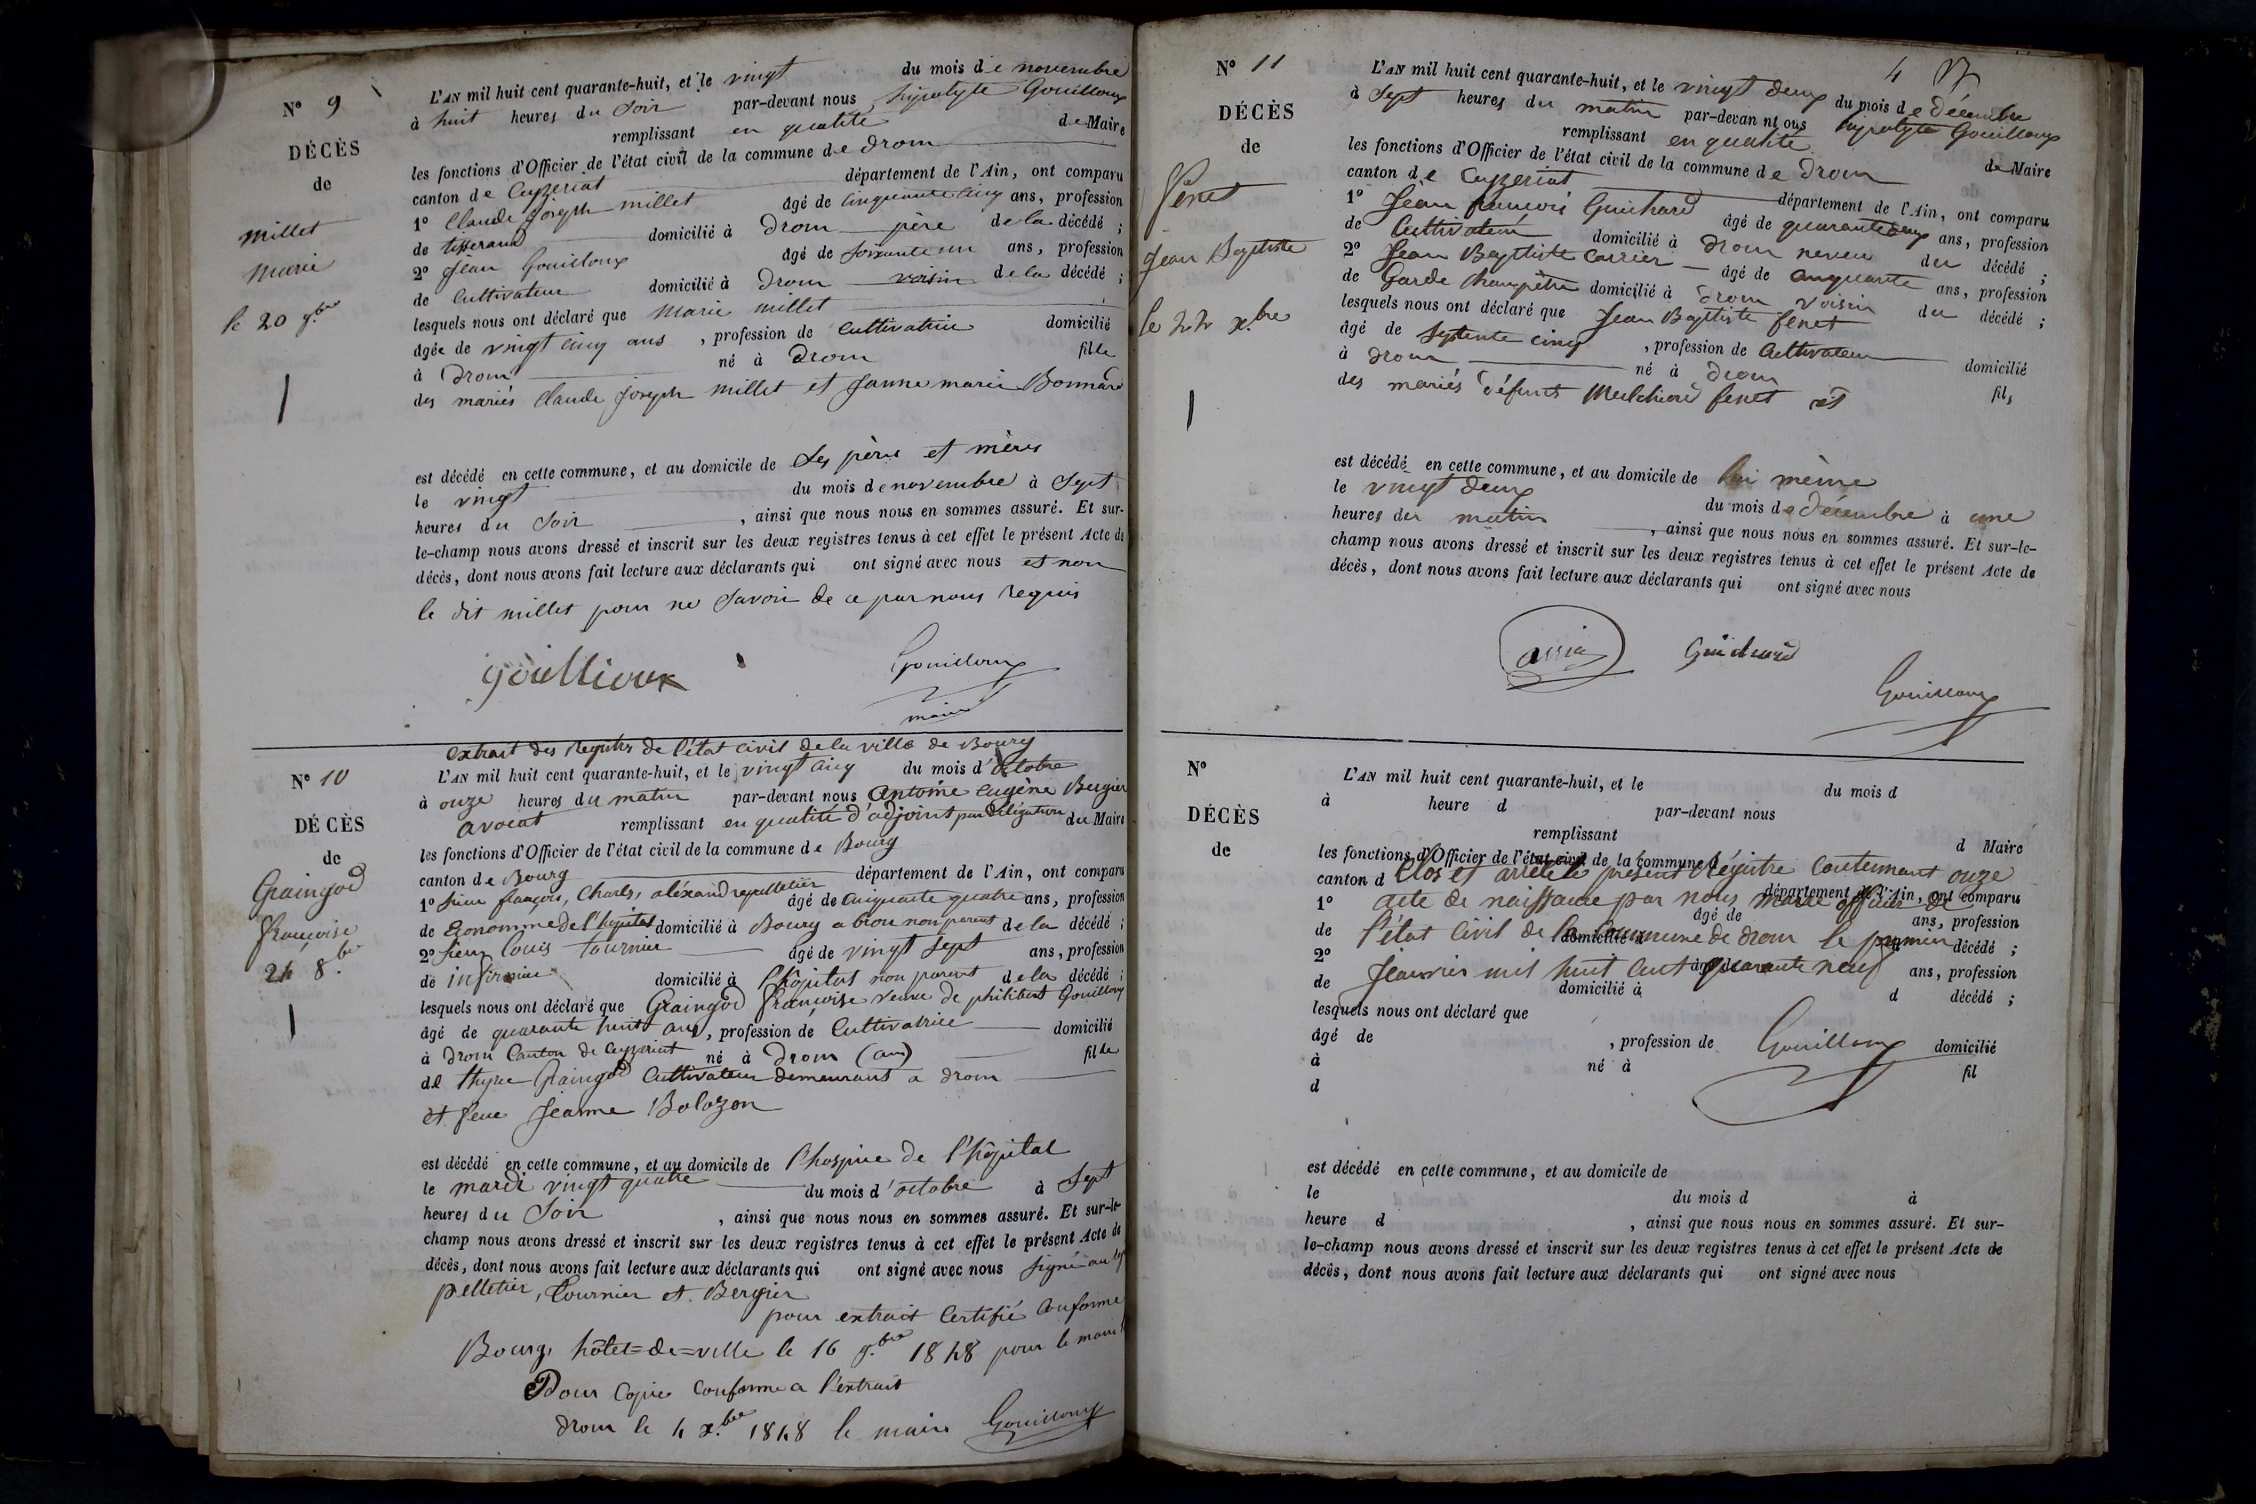 N° 9
DÉCÈS
de
Millet
Marie
le 20 9.bre
L'AN mil huit cent quarante-huit, et le vingt du mois de novembre
à huit heures du soir par-devant nous hipolyte Gouilloux
remplissant en qualité de Maire
les fonctions d'Officier de l'état civil de la commune de Drom
canton de Ceyzeriat département de l'Ain, ont comparu
1° Claude Joseph millet âgé de cinquante cinq ans, profession
de tisserand domicilié à Drom père de la décédé ;
2° Jean Gouilloux âgé de soixante un ans, profession
de Cultivateur domicilié à Drom voisin de la décédé ;
lesquels nous ont déclaré que Marie millet
âgée de vingt cinq ans , profession de Cultivatrice domicilié
à Drom né à Drom fille
des mariés Claude Joseph millet et Jeanne marie Bonnard
est décédé en cette commune, et au domicile de Ses père et mère
le vingt du mois de novembre à Sept
heures du Soir , ainsi que nous nous en sommes assuré. Et sur-
le-champ nous avons dressé et inscrit sur les deux registres tenus à cet effet le présent Acte de
décès, dont nous avons fait lecture aux déclarants qui ont signé avec nous et non
le dit millet pour ne Savoir de ce par nous requis
Gouilloux
maire
N° 10
DÉCÈS
de
Graingod
françoise
24 8.bre
Extrait des Registres de l'état civil de la ville de Bourg
L'AN mil huit cent quarante-huit, et le vingt cinq du mois d'Octobre
à onze heures du matin par-devant nous Antoine Eugène Bergier
avocat remplissant en qualité d'adjoint par délégation du Maire
les fonctions d'Officier de l'état civil de la commune de Bourg
canton de Bourg département de l'Ain, ont comparu
1° Sieur françois, Charles, aléxandre pelletier âgé de cinquante quatre ans, profession
de Econome de l'hopital domicilié à Bourg non parent de la décédé ;
2° Sieur Louis Tournier âgé de vingt Sept ans, profession
de infirmier domicilié à l'hôpital non parent de la décédé ;
lesquels nous ont déclaré que Graingod françoise veuve de philibert Gouilloux
âgé de quarante huit ans, profession de Cultivatrice domicilié
à Drom Canton de Ceyzeriat né à Drom (ain) fille
de Graingod Cultivateur demeurant a Drom
et feue Jeanne Bolozon
est décédé en cette commune, et au domicile de l'hospice de l'hôpital
le mardi vingt quatre du mois d'octobre à Sept
heures du Soir , ainsi que nous nous en sommes assuré. Et sur-le-
champ nous avons dressé et inscrit sur les deux registres tenus à cet effet le présent Acte de
décès, dont nous avons fait lecture aux déclarants qui ont signé avec nous Signé au
pelletier, Tournier et Bergier
pour extrait Certifié Conforme
Bourg, hôtel=de=ville le 16 9.bre 1848 pour le maire
Pour Copie Conforme a l'extrait
Drom le 4 x.bre 1848 le maire Gouilloux
4
N° 11
DÉCÈS
de
Fenet
Jean Baptiste
le 22 x.bre
L'AN mil huit cent quarante-huit, et le vingt deux du mois de Décembre
à Sept heures du matin par-devant nous hipolyte Gouilloux
remplissant en qualité de Maire
les fonctions d'Officier de l'état civil de la commune de Drom
canton de Ceyzeriat département de l'Ain, ont comparu
1° Jean françois Guichard âgé de quarante deux ans, profession
de Cultivateur domicilié à Drom neveu du décédé ;
2° Jean Baptiste Carrier âgé de cinquante ans, profession
de Garde Champêtre domicilié à Drom Voisin du décédé ;
lesquels nous ont déclaré que Jean Baptiste fenet
âgé de Septente cinq , profession de Cultivateur domicilié
à Drom né à Drom fils
des mariés Défunts Melchiord fenet et
est décédé en cette commune, et au domicile de lui même
le vingt deux du mois de Décembre à une
heures du matin , ainsi que nous nous en sommes assuré. Et sur-le-
champ nous avons dressé et inscrit sur les deux registres tenus à cet effet le présent Acte de
décès, dont nous avons fait lecture aux déclarants qui ont signé avec nous
Guichard
Gouilloux
N°
DÉCÈS
de
L'AN mil huit cent quarante-huit, et le du mois d
à heure d par-devant nous
remplissant d Maire
les fonctions d'Officier de l'état civil de la commune d
canton d département de l'Ain, ont comparu
Clos et arrêté le présent Régistre Contennant onze
1° âgé de ans, profession
acte de naissance par nous Maire officier de
de domicilié à décédé ;
l'état Civil de la Commune de Drom le premier
2° âgé de ans, profession
Jeanvier mil huit cent quarante neuf
de domicilié à d décédé ;
lesquels nous ont déclaré que
âgé de , profession de domicilié
Gouilloux
à né à fil
d
est décédé en cette commune, et au domicile de
le du mois d à
heure d , ainsi que nous nous en sommes assuré. Et sur-
le-champ nous avons dressé et inscrit sur les deux registres tenus à cet effet le présent Acte de
décès, dont nous avons fait lecture aux déclarants qui ont signé avec nous